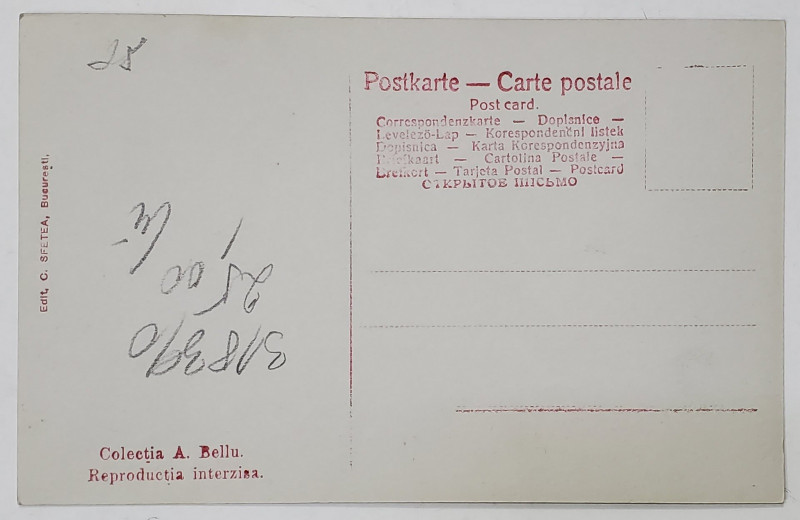 25
Postkarte — Carte postale
Post card.
Correspondenzkarte — Dopisnice —
Levelező-Lap — Korespondenční listek
Dopisnica — Karta Korespondenzyjna
Briefkaart — Cartolina Postale —
Brefkort — Tarjeta Postal — Postcard
ОТКРЫТОЕ ПИСЬМО
Edit, C. SFETEA, Bucureşti.
2500
Colecţia A. Bellu.
Reproducţia interzisa.